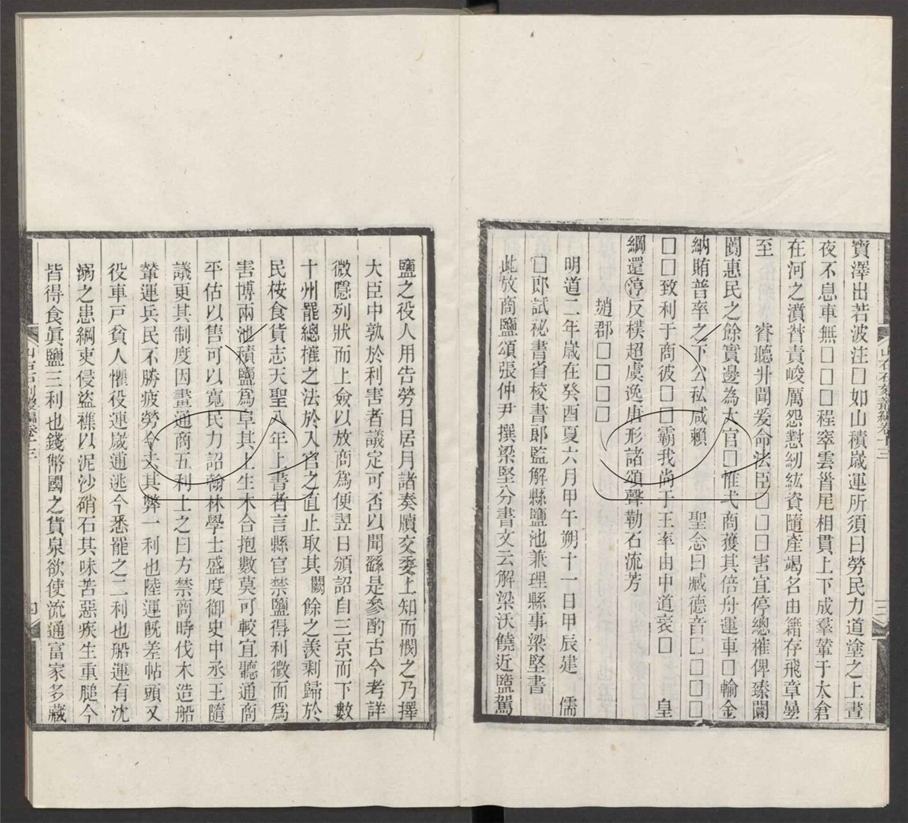 寶澤出若波注□如山積歲運所須日勞民力道塗之上晝
夜不息車無□□□程牽雲簪尾相貫上下成羣輦于太倉
在河之濆督責峻厲怨懟紛紜資隨產竭名由籍存飛章
至 睿聽升聞爰命法臣□□□害宜停總榷俾臻闤
闠惠民之餘實邊為大官□惟弍商獲其倍舟運車□輸金
納賄普率之下公私咸賴 聖念曰臧德音□□□□
□□致利于商彼□□霸我尚于王率由中道袤□ 皇
綱還淳反樸超虞逸唐形諸頌聲勒石流芳
趙郡□□□□
明道二年歲在癸酉夏六月甲午朔十一日甲辰建 儒
□郎試祕書省校書郎監解縣鹽池兼理縣事梁堅書
此放商鹽頌張仲尹撰梁堅分書文云解梁沃饒近鹽駕
鹽之役人用告勞日居月諸奏牘交委上知而憫之乃擇
大臣中孰於利害者議定可否以聞繇是參酌古今考詳
微隱列狀而上僉以放商為便翌日頒詔自三京而下數
十州罷總榷之法於入官之直止取其闕餘之羨剩歸於
民桉食貨志天聖八年上書者言縣官禁鹽得利微而為
害博兩池積鹽為阜其上生木合抱數莫可較宜聽通商
平估以售可以寬民力詔翰林學士盛度御史中丞王隨
議更其制度因畫通商五利上之曰方禁商時伐木造船
輦運兵民不勝疲勞今去其弊一利也陸運旣差帖頭又
役車戶貧人懼役連歲逋逃今悉罷之二利也船運有沈
溺之患綱吏侵盜襍以泥沙硝石其味苦惡疾生重膇今
皆得食眞鹽三利也錢幣國之貨泉欲使流通富家多藏